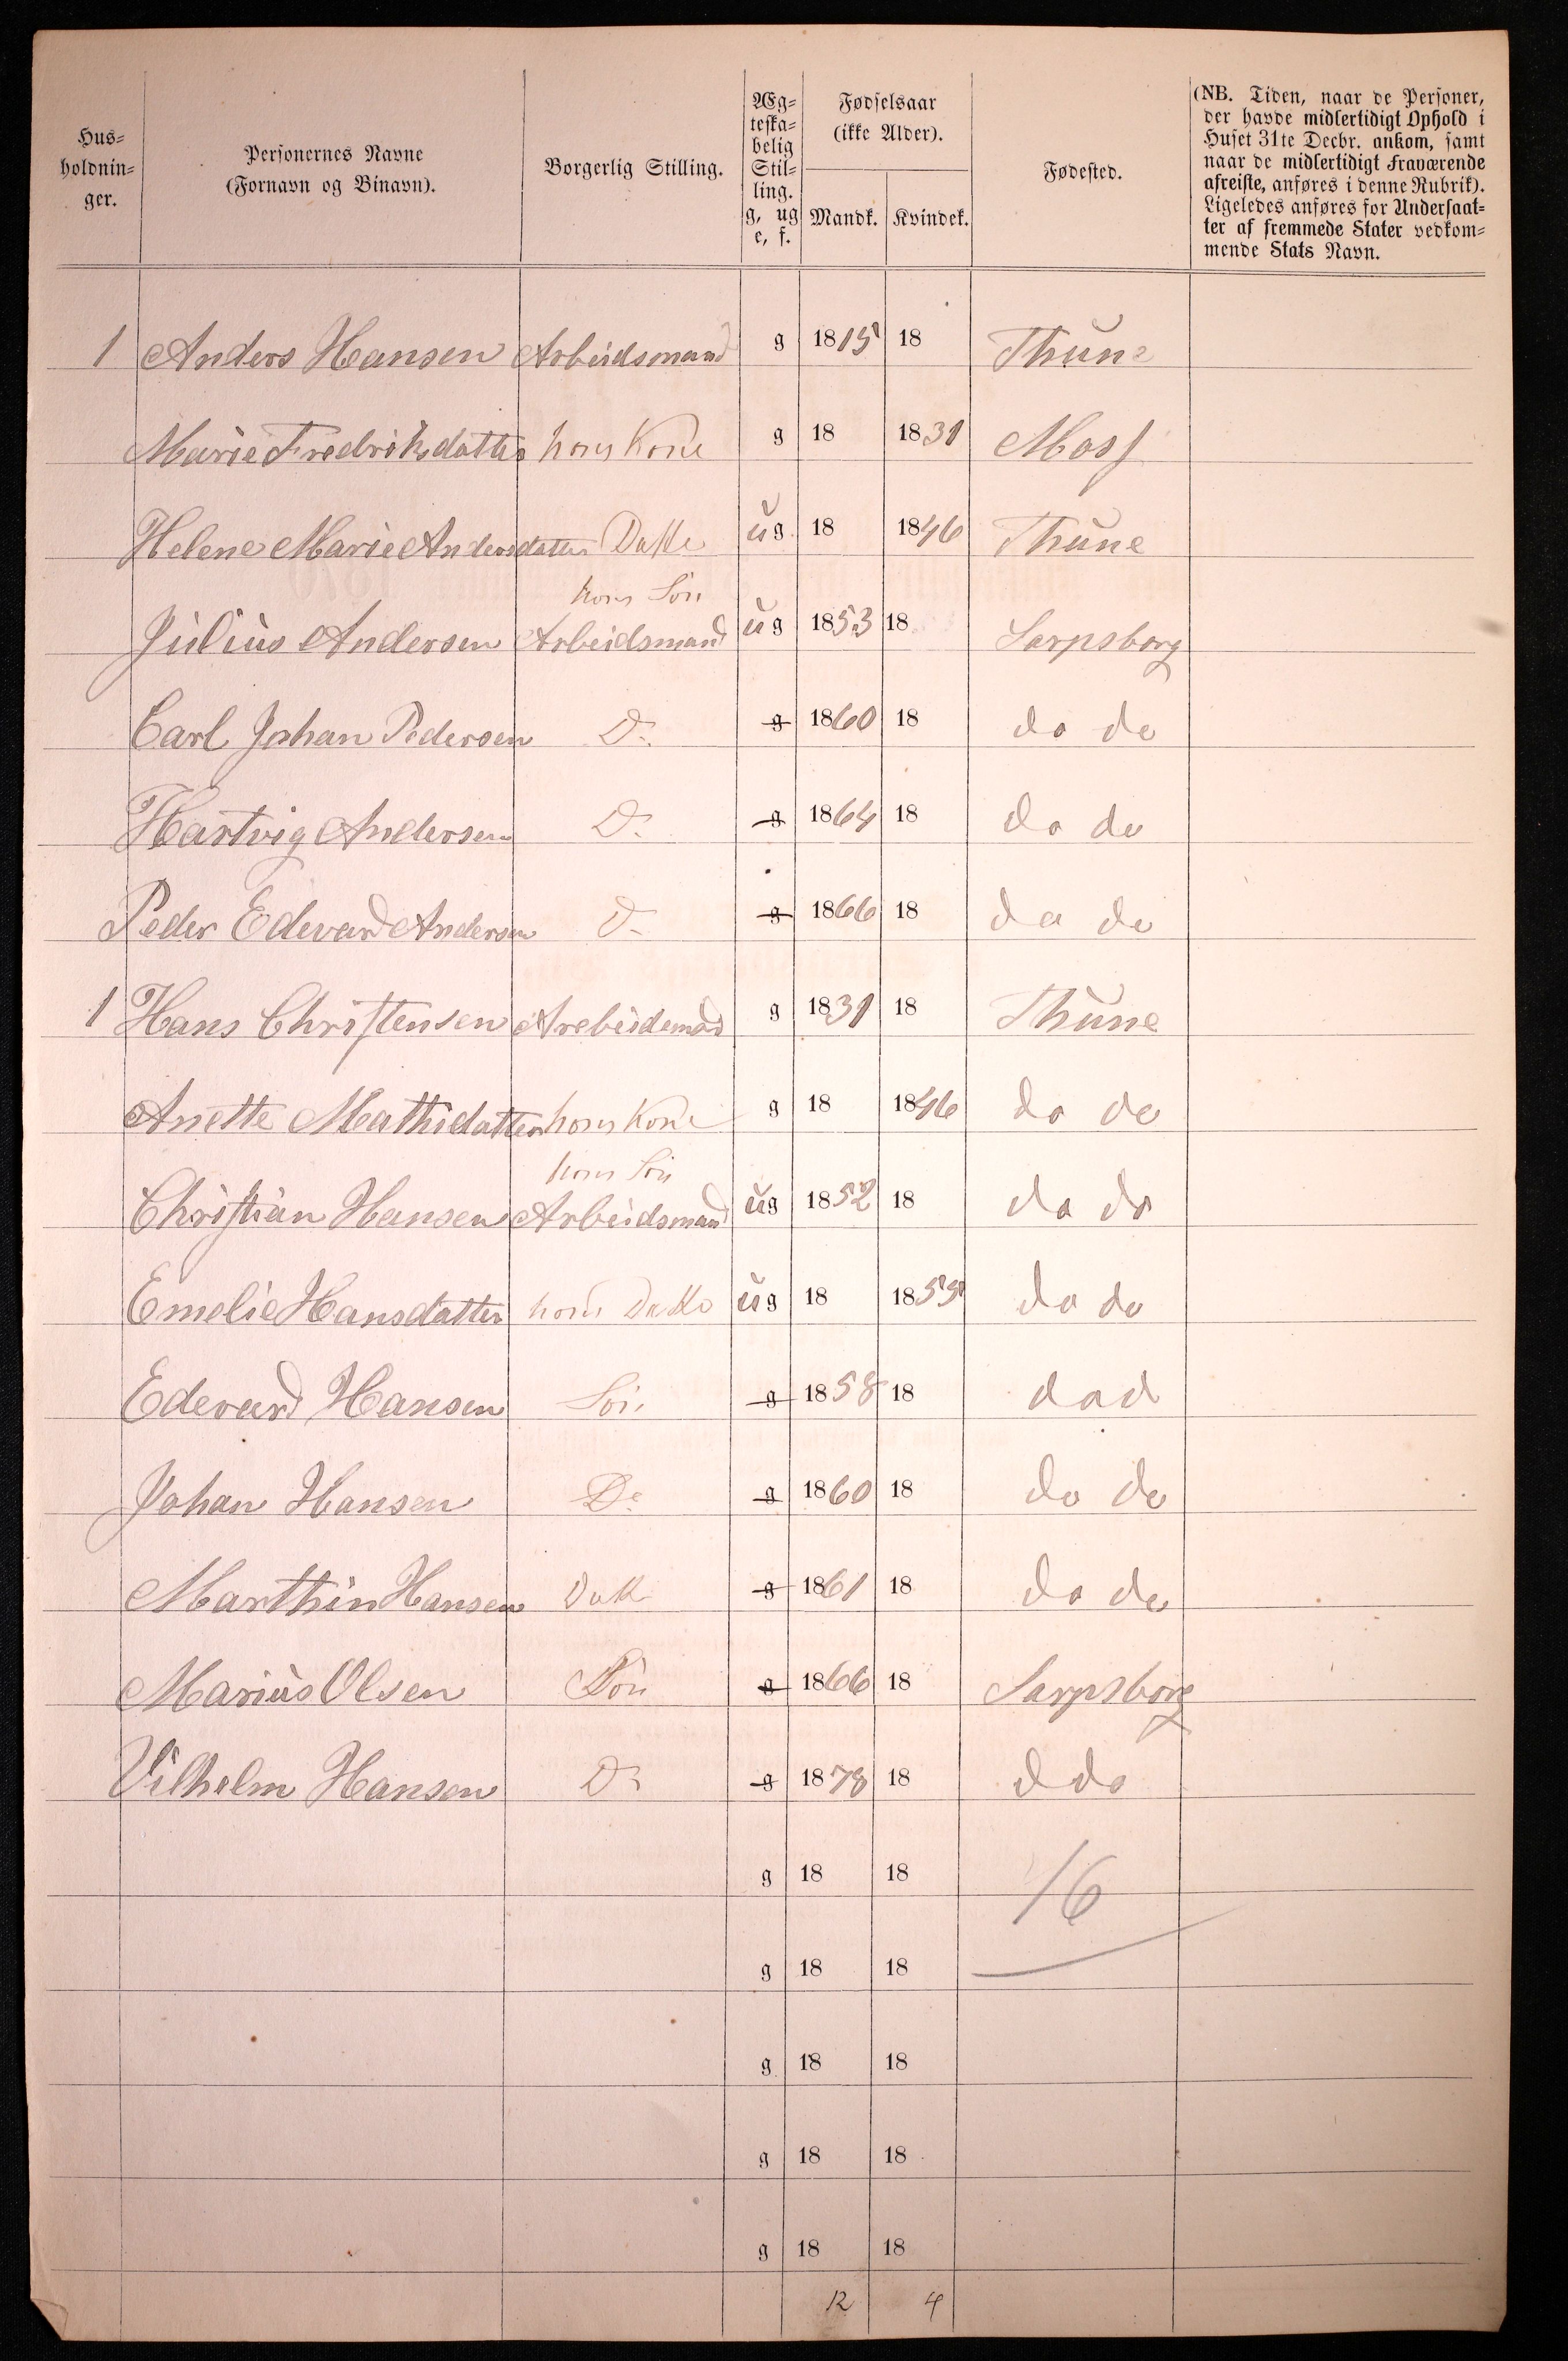 Hus-
holdnin-
ger.
Personernes Navne
(Fornavn og Binavn).
Borgerlig Stilling.
Æg-
teska-
belig
Stil-
ling.
g, ug
e, f.
Fødselsaar
(ikke Alder).
Mandk. Kvindek.
Fødested.
(NB. Tiden, naar de Personer,
der havde midlertidigt Ophold i
Huset 31te Decbr. ankom, samt
naar de midlertidigt Fraværende
afreiste, anføres i denne Rubrik).
Ligeledes anføres for Undersaat-
ter af fremmede Stater vedkom-
mende Stats Navn.
1 Anders Hansen Arbeidsmand g 1815 18 Thune
Marie Fredriksdatter hans Kone g 18 1831 Moss
Helene Marie Andersdatter Datte ug 18 1846 Thune
hans Sön
Julius Andersen Arbeidsmand ug 1853 18 Sarpsborg
Carl Johan Pedersen D. g 1860 18 do do
Hartvig Andersen D. g 1864 18 do do
Peder Edevard Andersen D. g 1866 18 do do
1 Hans Christensen Arebeidsmad g 1831 18 Thune
Anette Mathidatter hans Kone g 18 1846 do do
hans Sön
Christian Hansen Arbeidsmand ug 1852 18 do do
Emelie Hansdatter hans Datte ug 18 1855 do do
Edevard Hansen Sön g 1858 18 do d
Johan Hansen Do g 1860 18 do do
Marthin Hansen Datt g 1861 18 do do
Marius Olsen Sön g 1866 18 Sarpsborg
Vilhelm Hansen Do g 1878 18 d do
g 18 18 16
g 18 18
g 18 18
g 18 18
g 18 18
12 4